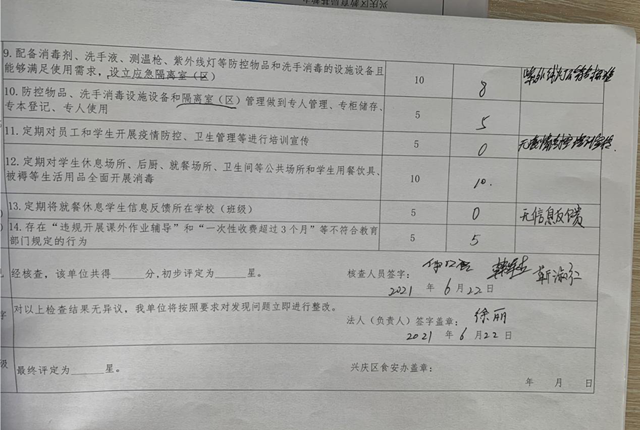 9. 配备消毒剂、洗手液、测温枪、紫外线灯等防控物品和洗手消毒的设施设备且
能够满足使用需求，设立应急隔离室（区）
10
8
10. 防控物品、洗手消毒设施设备和隔离室（区）管理做到专人管理、专柜储存、
专本登记、专人使用
5
5
11. 定期对员工和学生开展疫情防控、卫生管理等进行培训宣传
5
0
12. 定期对学生休息场所、后厨、就餐场所、卫生间等公共场所和学生用餐饮具、
被褥等生活用品全面开展消毒
10
10.
13. 定期将就餐休息学生信息反馈所在学校（班级）
5
0
无信息反馈
14. 存在“违规开展课外作业辅导”和“一次性收费超过3个月”等不符合教育
部门规定的行为
5
5
经核查，该单位共得____分,初步评定为____星。
核查人员签字：
2021 年 6 月 22 日
对以上检查结果无异议，我单位将按照要求对发现问题立即进行整改。
法人（负责人）签字盖章：徐丽
2021 年 6 月 22 日
最终评定为____星
兴庆区食安办盖章：
年 月 日